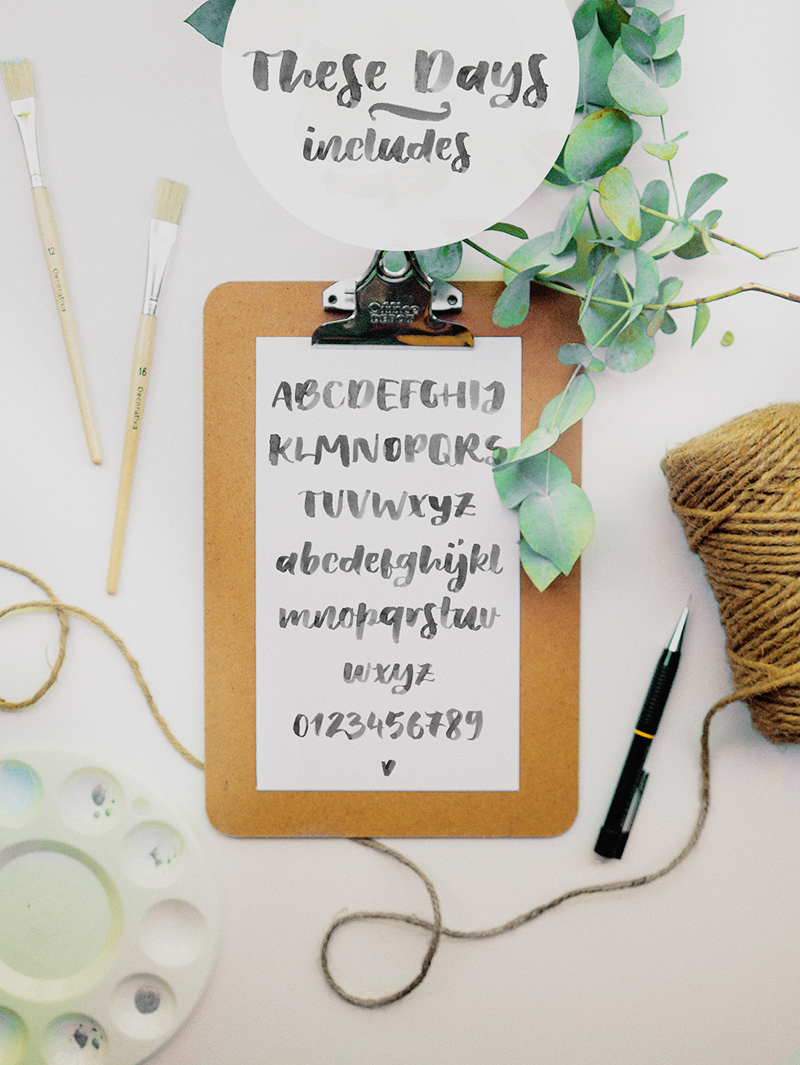 These Days
includes
Office
DEPOT
ABCDEFGHIJ
KLMNOPQRS
TUVWXYZ
abcdefghijkl
mnopqrstuv
wxyz
0123456789
12 Decorativa
16 Decorativa